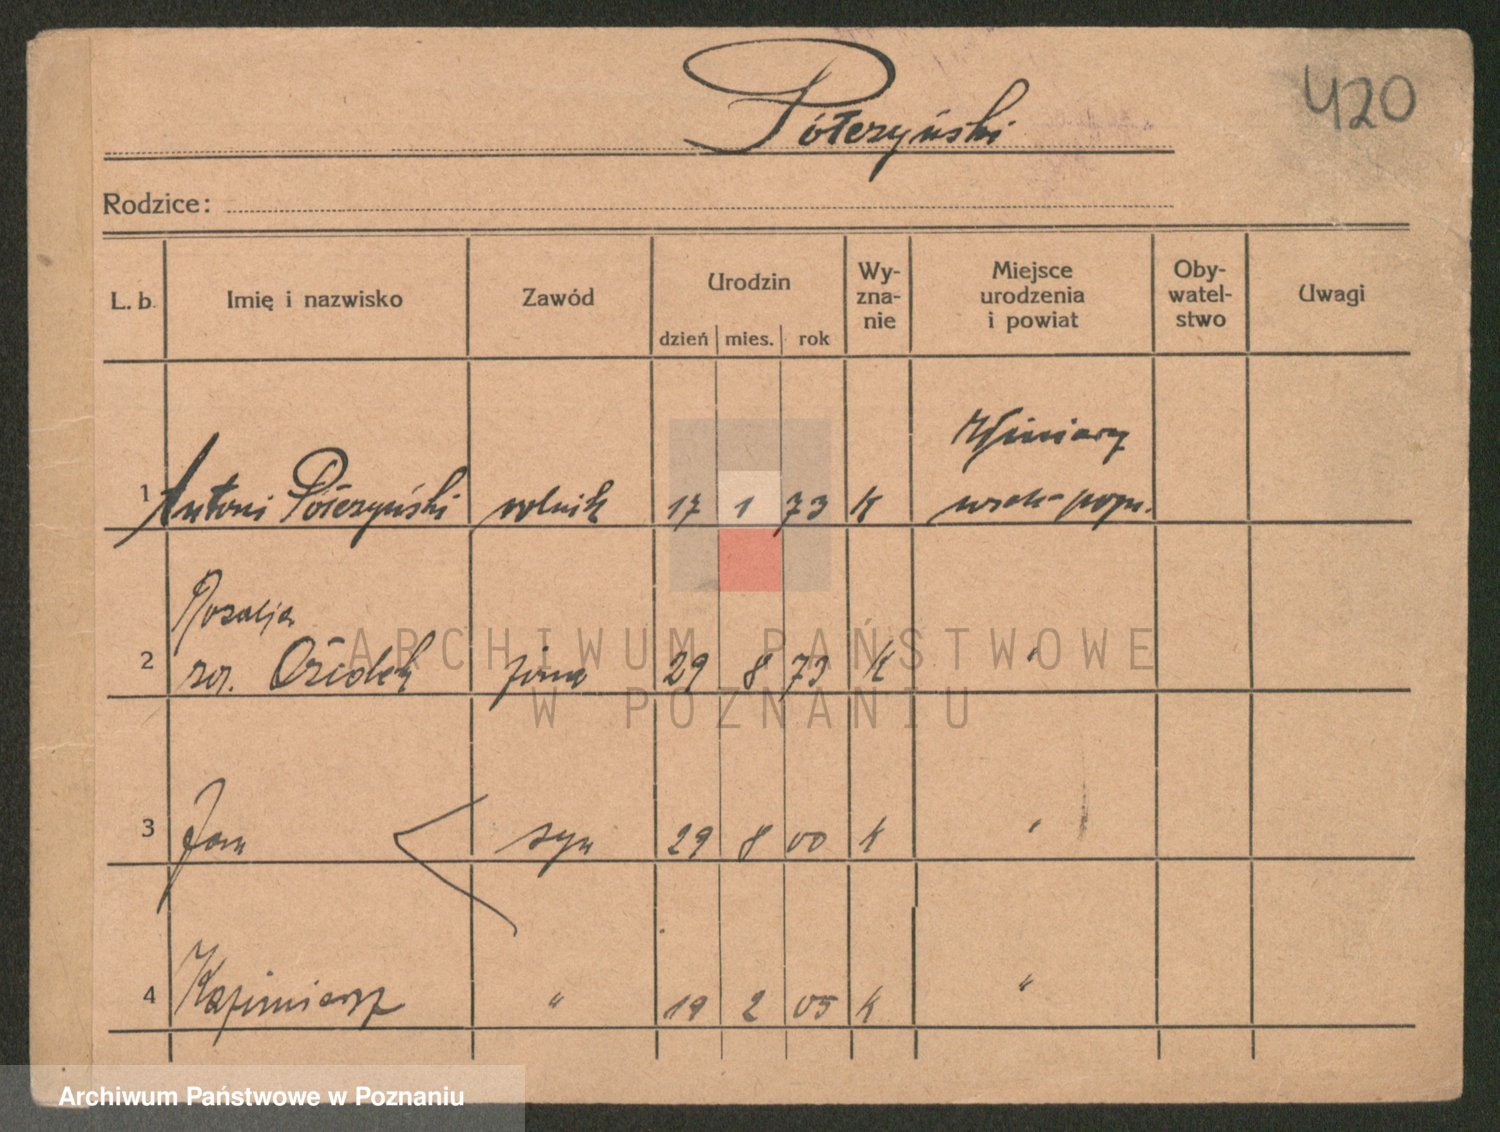 420
Półczyński
Rodzice:
L. b. Imię i nazwisko Zawód Urodzin Wy-zna-nie Miejsce urodzenia i powiat Oby-watel-stwo Uwagi
dzień mies. rok
Winiary
1 Antoni Półczyński rolnik 17 1 73 K
Rozalja
2 Ożidek żona 29 8 73 K "
3 Jan syn 29 8 00 K "
4 Kazimierz " 19 2 05 K "
ARCHIWUM PAŃSTWOWE
W POZNANIU
Archiwum Państwowe w Poznaniu